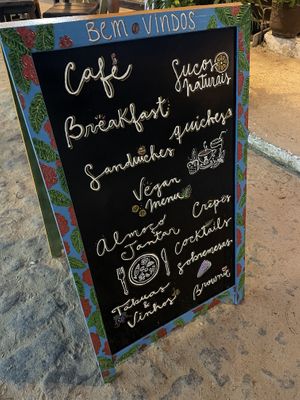 BEM VINDOS
Café
Sucos
Naturais
Breakfast
Quiches
Sandwiches
Vegan
Menu
Crêpes
Almoço
Jantar
Cocktails
Sobremesas
Tábuas &
Vinhos
Brownie